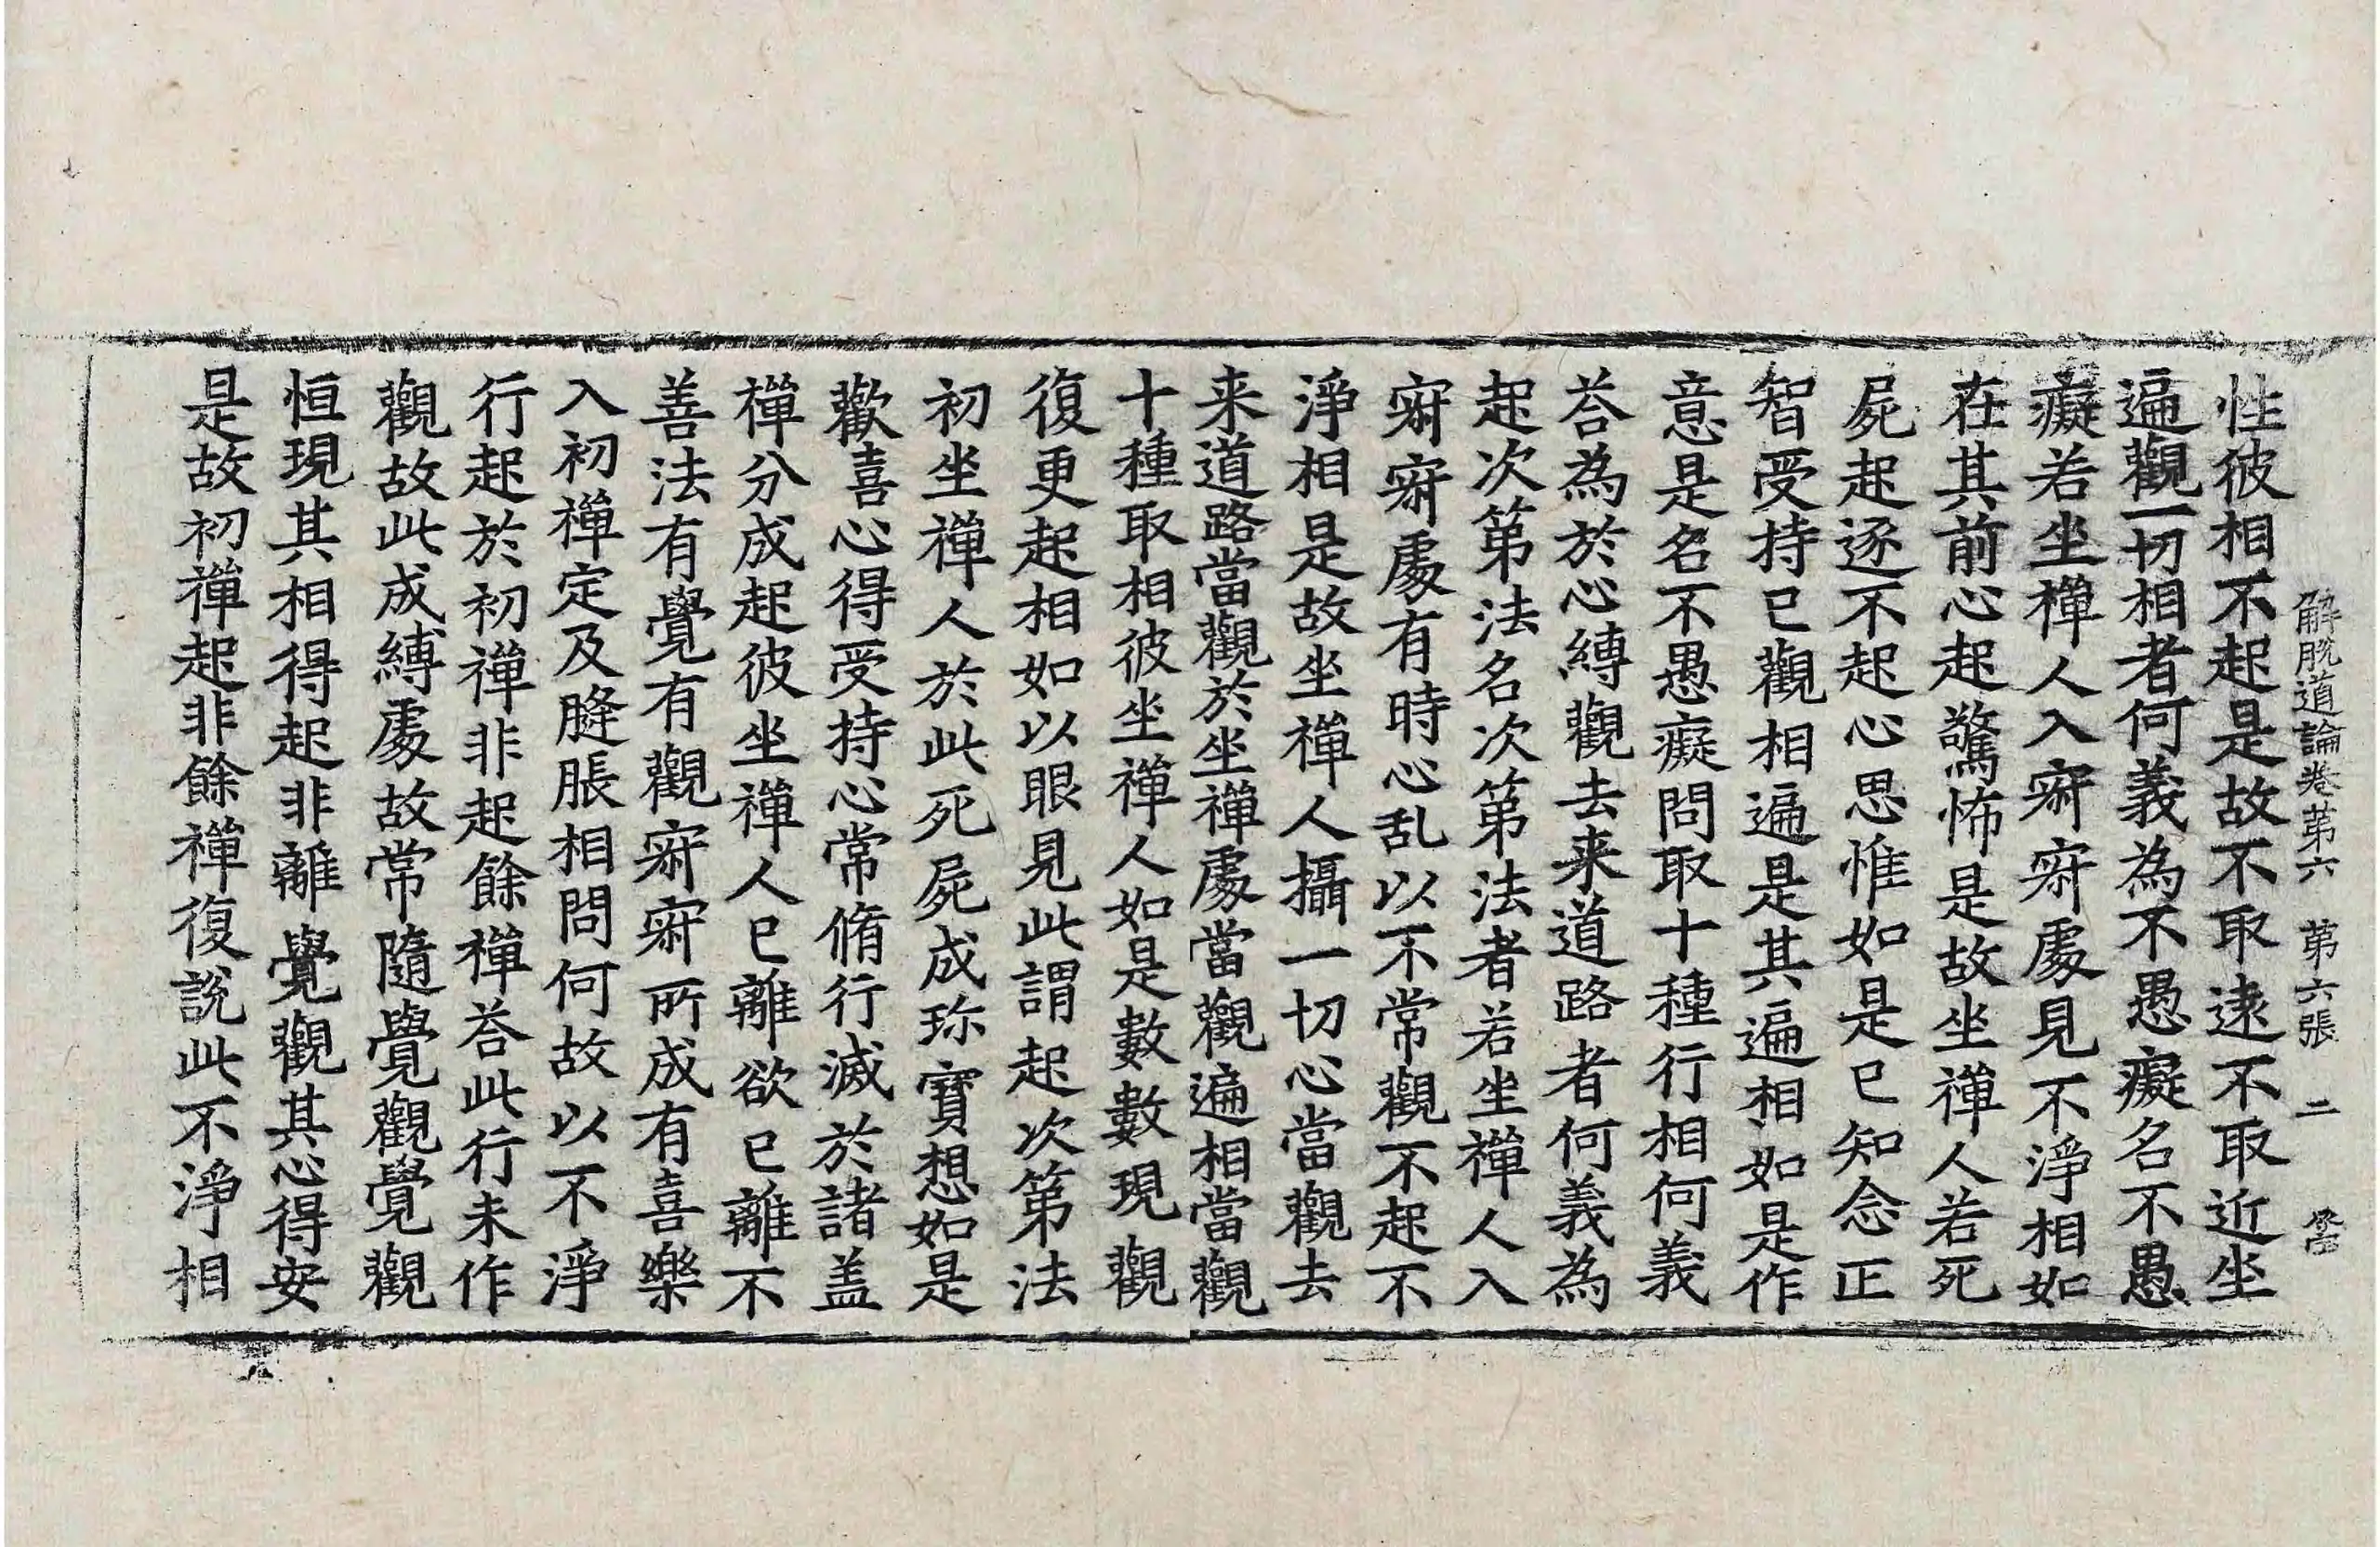 解脫道論卷第六　第六張　二　啓
性彼相不起是故不取遠不取近坐
遍觀一切相者何義為不愚癡名不愚
癡若坐禪人入寂寂處見不淨相如
在其前心起驚怖是故坐禪人若死
屍起逐不起心思惟如是已知念正
智受持已觀相遍是其遍相如是作
意是名不愚癡問取十種行相何義
荅為於心縛觀去来道路者何義為
起次第法名次第法者若坐禪人入
寂寂處有時心乱以不常觀不起不
淨相是故坐禪人攝一切心當觀去
来道路當觀於坐禪處當觀遍相當觀
十種取相彼坐禪人如是數數現觀
復更起相如以眼見此謂起次第法
初坐禪人於此死屍成珎寶想如是
歡喜心得受持心常脩行滅於諸盖
禪分成起彼坐禪人已離欲已離不
善法有覺有觀寂寂所成有喜樂
入初禪定及膖脹相問何故以不淨
行起於初禪非起餘禪荅此行未作
觀故此成縛處故常隨覺觀覺觀
恒現其相得起非離覺觀其心得安
是故初禪起非餘禪復說此不淨相